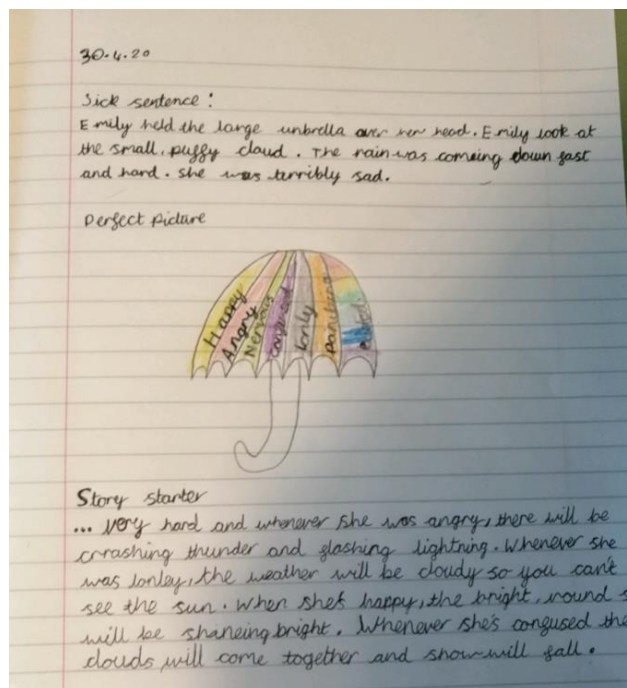 30.4.20
Sick sentence:
Emily held the large unbrella over her head. Emily look at
the small, puffy cloud. The rain was comeing down fast
and hard. She was terribly sad.
Perfect Picture
Happy
Angry
Nervous
Confused
lonly
Story starter
... very hard and whenever she was angry, there will be
crrashing thunder and flashing lightning. Whenever she
was lonley, the weather will be cloudy so you can't
see the sun. When she's happy, the bright, round s
will be shaneing bright. Whenever she's confused the
clouds will come together and snow will fall.